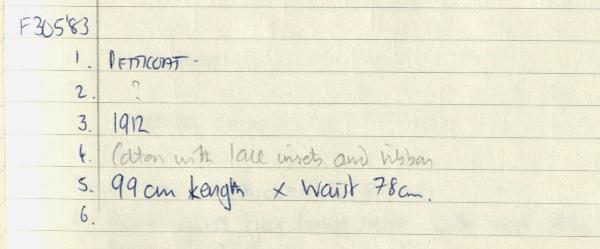 F305'83
1. PETTICOAT.
2. ?
3. 1912
4. Cotton with lace insets and ribbon
5. 99cm Length x Waist 78cm.
6.